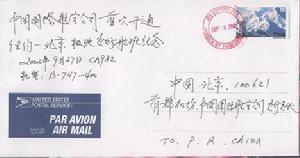 中国国际航空公司 首次开通
纽约—北京 极地直行航班纪念
2002年9月27日 CA982
机型: B-747-400
UNITED STATES
POSTAL SERVICE
PAR AVION
AIR MAIL
中国·北京. 100621
首都机场 中国国际航空公司
TO. P. R. CHINA